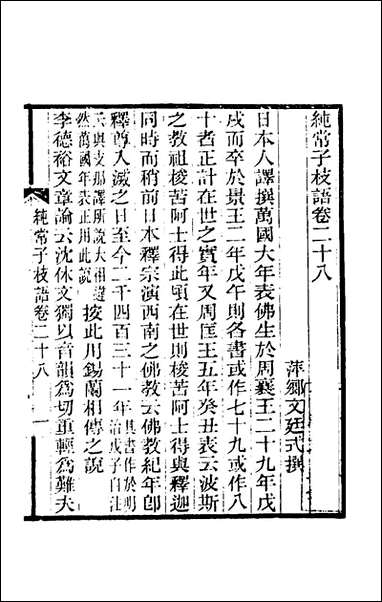 純常子枝語卷二十八
萍鄉文廷式撰
日本人譯撰萬國大年表佛生於周襄王二十九年戊
戌而卒於景王二年戊午則各書或作七十九或作八
十者正計在世之實年又周匡王五年癸丑表云波斯
之教祖梭苦阿士得此頃在世則梭苦阿士得與釋迦
同時而稍前日本釋宗演西南之佛教云佛教紀年卽
釋尊入滅之日至今二千四百三十一年其書作於明治戊子自注
云與支那譯所說大相違然萬國年表正用此說按此用錫蘭相傳之說
李德裕文章論云沈休文獨以音韻爲切重輕爲難夫
純常子枝語卷二十八 一